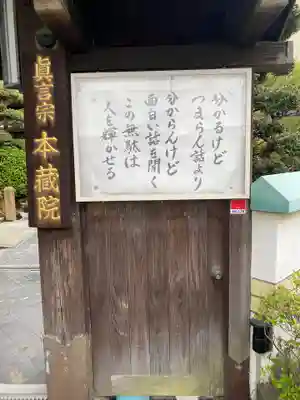 眞言宗 本藏院
分かるけど
つまらん話より
分からんけど
面白い話を聞く
この無駄は
人を輝かせる